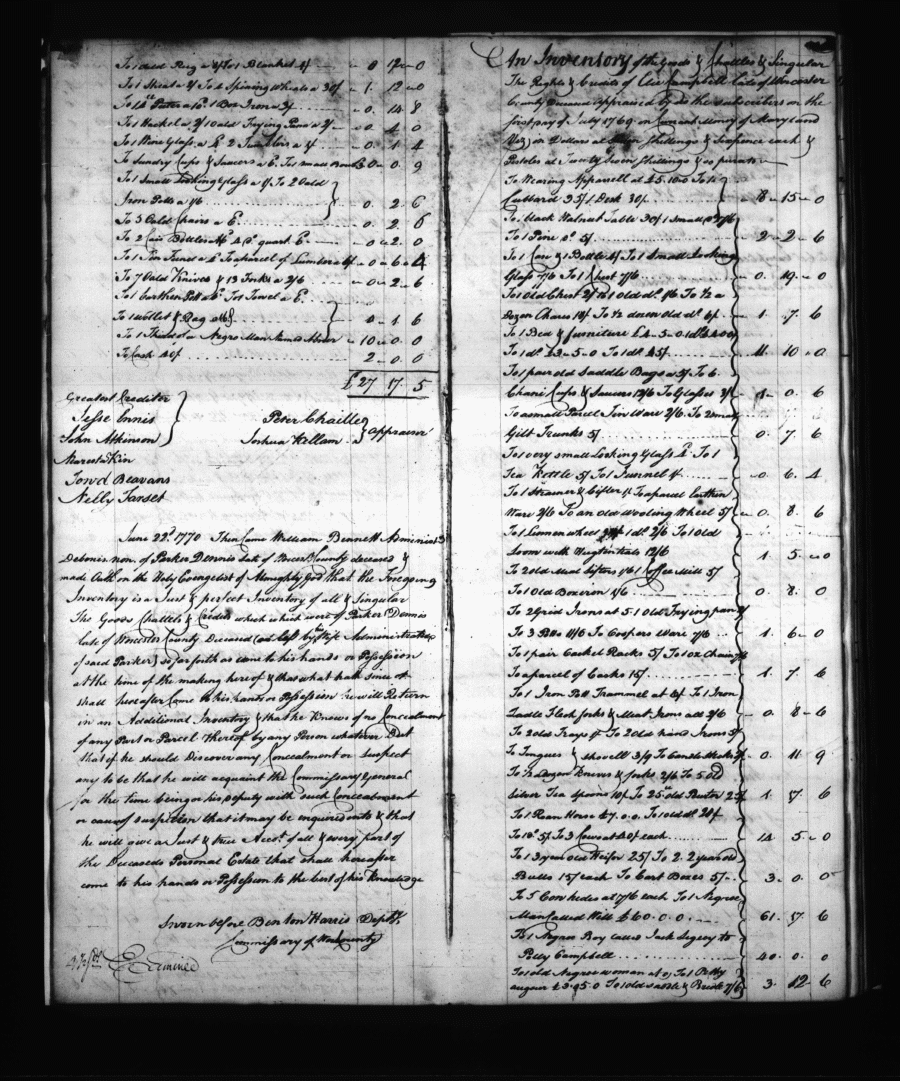 To 1 old Rug a 8/ To 1 Blanket 4/ 0 12 0
To 1 Sheat a 2/ To 4 Spining Wheels a 30/ 1. 12 0
Puter a 1 Box Iron a 3/ 0. 14 8
To 1 Hackel a 2/ 1 old Frying Pann a 2/ 0 4 0
To 1 Wine Glass a 2 Tumblers a 0. 1 4
To Sundry Cups & Saucers a 6. To 1 small 0 0 9
To 1 Small Looking Glass a 1/ To 2 old
Iron Potts a 1/6 0. 2 6
To 5 Old Chairs a 6d 0. 2 6
To 2 Case Bottles quart 0 2. 0
To 1 Tin Funel a To a parcel of Lumber a 6/ 0 6 4
To 7 old Knives & 13 Forks a 2/6 0 2 6
To 1 Earthen Pott a To 1 Towel a 6d
To 1 Wollet & Bag 0 1 6
To 1 Third of a Negro Man Named 10 0 0
To Cash 40/ 2 0 0
£27 17 5
Greatest Creditor
Jesse Ennis
John Atkinson
Nearest a Kin
Beavans
Nelly Tarset
Peter Chaille
Joshua Kellam Appraiser
June 22d 1770 Then Came William Bennett Administr
Debonis non. of Parker Dennis late of Worcr County deceased &
made Oath on the Holy Evangelist of Almighty God that the Foregoing
Inventory is a Just & perfect Inventory of all & Singular
The Goods Chattels & Credits which were of Parker Dennis
late of Worcester County Deceased Administratrix
of said Parker) so far forth as came to his hands or Possession
at the time of the making hereof & that what hath since or
shall hereafter Come to his hands or Possession he will Return
in an Additional Inventory & that he Knows of no Concealment
of any Part or Parcel thereof by any Person whatever But
that if he should Discover any Concealment or suspect
any to be that he will acquaint the Commissary General
for the time being or his deputy with such Concealment
or cause of suspition that it may be enquired into & that
he will give a Just & true Acct. of all & every part of
the Deceaseds Personal Estate that shall hereafter
come to his hands or Possession to the best of his Knowledge
Sworn before Benton Harris Depty.
Commissary of Worcr County
Examined
An Inventory of the Goods Chattles & Singular
The Rights & Credits of Campbell late of Worcester
County Deceased Appraised by us the subscribers on the
first day of July 1769 on Current Money of Maryland
Vizt) in Dollars at Seven Shillings & Sixpence each &
Pistoles at Twenty Seven Shillings & so pro rata
To Wearing Apparrell at £5.10.0 To 1
Cubbard 35/ 1 Desk 30/ 8 15 0
To 1 black Walnut Table 30/ 1 Small do 7/6
To 1 Pine do. 5/ 2 2 6
To 1 Case & 1 Bottle 4/ To 1 Small Looking
Glass 7/6 To 1 Chest 7/6 0. 19. 0
To 1 Old Chest 2/ To 1 old do. 1/6 To 1/2 a
Dozen Chares 18/ To 1/2 dozen old do. 6/ 1. 7. 6
To 1 Bed & furniture £4.5.0 1 do
To 1 do. £2.5.0 To 1 do. 45/ 11. 10 0
To 1 pair old Saddle Bags a 5/ To 6
Chani Cups & Saucers 12/6 To Glasses 3/ 1 0. 6
To a small Parcel Tin Ware 2/6 To 2 small
Gilt Trunks 5/ 0. 7. 6
To 1 very small Looking Glass To 1
Tea Kettle 5/ To 1 Funnell 4 0. 6. 4
To 1 Strainer & Sifter To a parcel Earthen
Ware 2/6 To an old Wooling Wheel 5/ 0. 8. 6
To 1 Linnen Wheel 1 do. 2/6 To 1 Old
Loom with 12/6 1. 5. 0
To 2 Old Meal Sifters 1/6 1 Coffee Mill 5/
To 1 Old Box Iron 1/6 0. 8. 0
To 2 Grid Irons at 5. 1 Old Frying pan
To 3 Potts 11/6 To Coopers Ware 7/6 1. 6 0
To 1 pair Racks 5/ To 1 Ox Chain 7/6
To a parcel of Casks 15/ 1. 7. 6
To 1 Iron Pott Trammell at 4/ To 1 Iron
Ladle Flesh forks & Meat Irons all 2/6 0. 8 6
To 2 Old Trays To 2 Old hand Irons 5/
To Tongues & Shovell 3/9 To Candlesticks 0. 11 9
To 1/2 dozen Knives & forks 2/6 To 5 old
Silver Tea Spoons 10/ To 25 old Peuter 25/ 1. 17. 6
To 1 Roan Horse £7.0.0 To 1 old
To 1 do. 5/ To 3 Cows at 40/ each 14 5 0
To 1 3 year old Heifer 25/ To 2. 2 year old
Bulls 15/ each To Cart Boxes 5/ 3. 0. 0
To 5 Cowhides at 7/6 each To 1 Negroe
Man Called Will £60.0.0 61. 17. 6
To 1 Negroe Boy called Jack Legecy to
Polly Campbell 40. 0. 0
To 1 old Negroe woman at 0/ To 1 Pitty
augur £3.05.0 To 1 old saddle & Bridle 7/6 3. 12 6